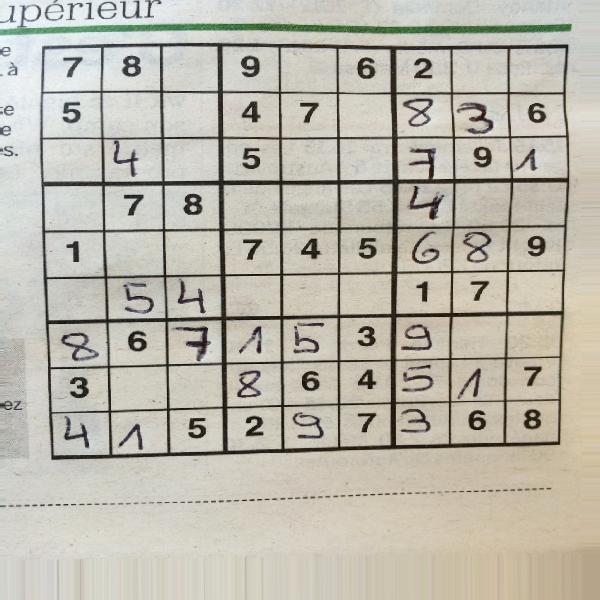 upérieur
e
à
te
e
es.
7 8 9 6 2
5 4 7 8 3 6
4 5 7 9 1
7 8 4
1 7 4 5 6 8 9
5 4 1 7
8 6 7 1 5 3 9
3 8 6 4 5 1 7
ez
4 1 5 2 9 7 3 6 8